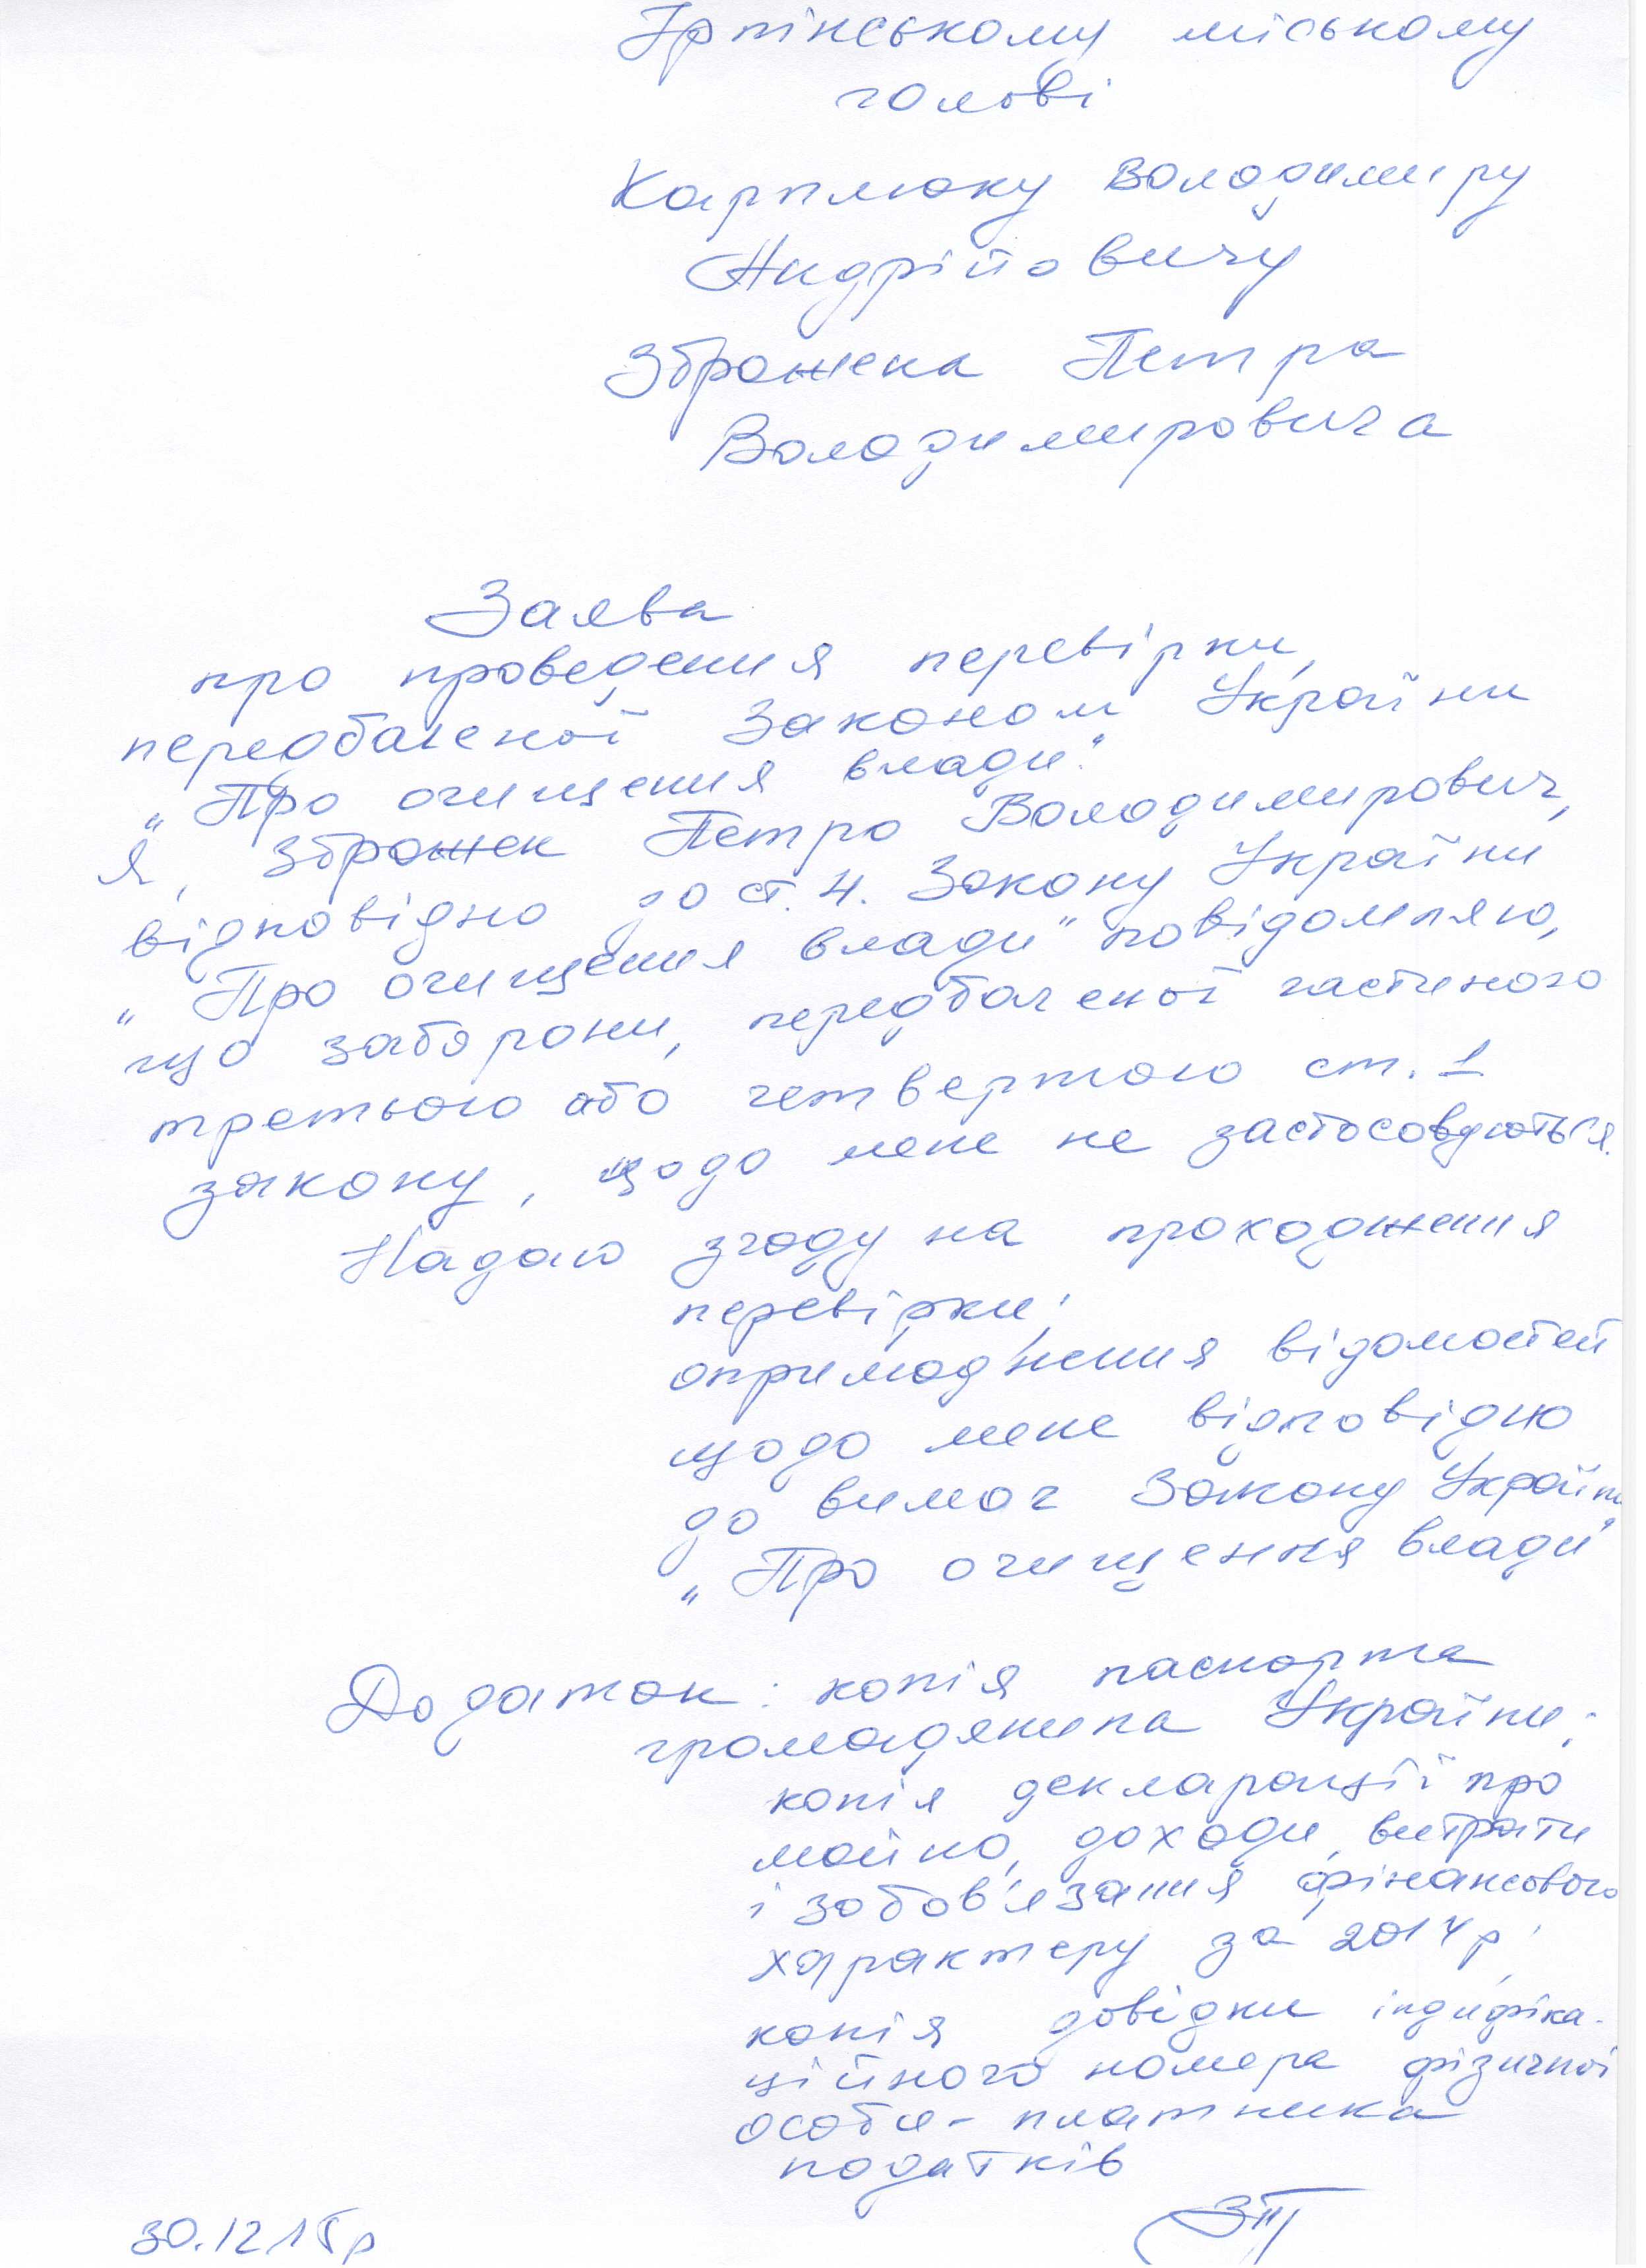 Ірпінському міському
голові
Карплюку Володимиру
Андрійовичу
Зброжека Петра
Володимировича
Заява
про проведення перевірки,
передбаченої Законом України
„Про очищення влади."
Я, Зброжек Петро Володимирович,
відповідно до ст. 4. Закону України
„Про очищення влади" повідомляю,
що заборони, передбаченої частиною
третьою або четвертою ст. 1
закону, щодо мене не застосовуються.
Надаю згоду на проходження
перевірки;
оприлюднення відомостей
щодо мене відповідно
до вимог Закону України
„Про очищення влади"
Додаток: копія паспорта
громадянина України;
копія декларації про
майно, доходи, витрати
і зобов'язання фінансового
характеру за 2014 р;
копія довідки індифіка-
ційного номера фізичної
особи - платника
податків
30.12 15 р